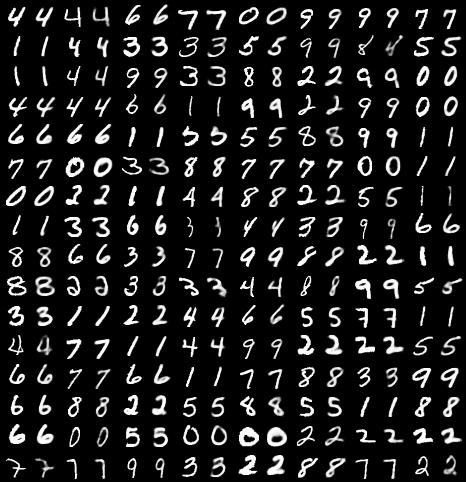 4 4 4 4 6 6 7 7 0 0 9 9 9 9 7 7
1 1 4 4 3 3 3 3 5 5 9 9 8 8 5 5
1 1 4 4 9 9 3 3 8 8 2 2 9 9 0 0
4 4 4 4 6 6 1 1 9 9 2 2 9 9 0 0
6 6 6 6 1 1 5 5 5 5 8 8 9 9 1 1
7 7 0 0 3 3 8 8 7 7 7 7 0 0 1 1
0 0 2 2 1 1 4 4 8 8 2 2 5 5 1 1
1 1 3 3 6 6 3 3 4 4 3 3 9 9 6 6
8 8 6 6 3 3 7 7 9 9 8 8 2 2 1 1
8 8 2 2 3 3 3 3 4 4 8 8 9 9 5 5
3 3 1 1 2 2 4 4 6 6 5 5 7 7 1 1
4 4 7 7 1 1 4 4 9 9 2 2 2 2 5 5
6 6 7 7 6 6 1 1 7 7 8 8 3 3 9 9
6 6 8 8 2 2 5 5 8 8 5 5 1 1 8 8
6 6 0 0 5 5 0 0 0 0 2 2 2 2 2 2
7 7 7 7 9 9 3 3 2 2 8 8 7 7 2 2